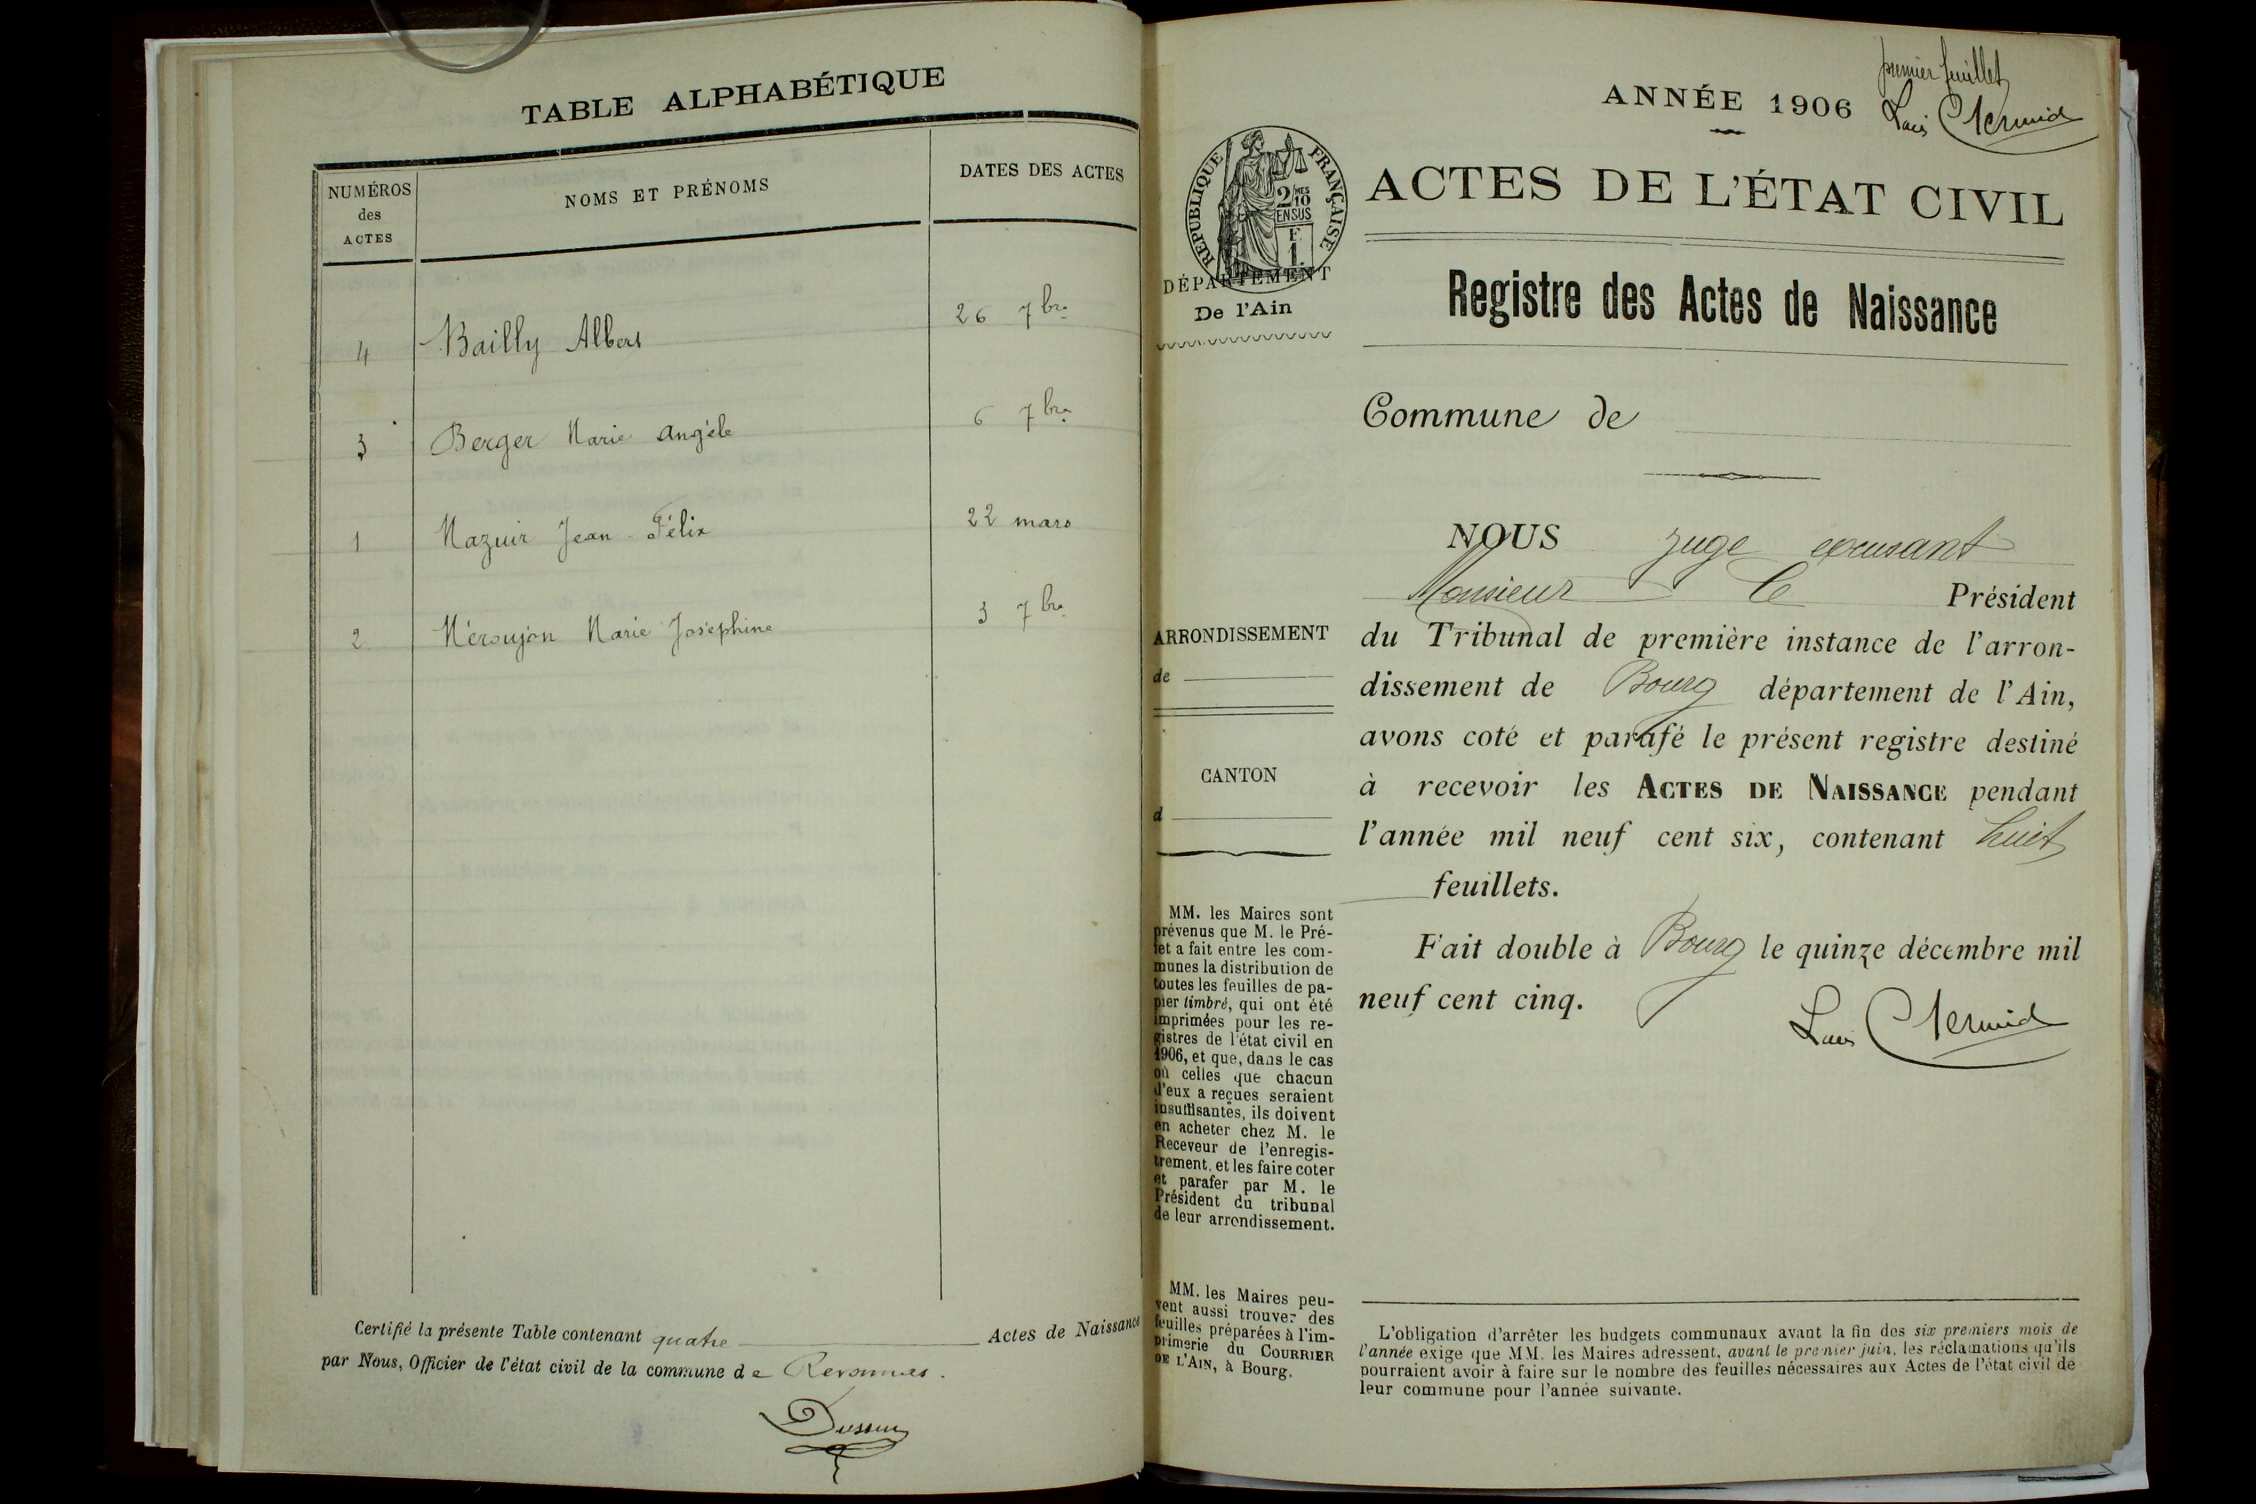 TABLE ALPHABÉTIQUE
NUMÉROS des ACTES
NOMS ET PRÉNOMS
DATES DES ACTES
4 Bailly Albert 26 7bre
3 Berger Marie Angèle 6 7bre
1 Mazuir Jean-Félix 22 mars
2 Néroujon Marie Joséphine 3 7bre
Certifié la présente Table contenant quatre Actes de Naissance
par Nous, Officier de l'état civil de la commune de Revonnas.
premier feuillet
ANNÉE 1906
Louis
RÉPUBLIQUE FRANÇAISE
2/10 MES
EN SUS
F.
1.
ACTES DE L'ÉTAT CIVIL
DÉPARTEMENT
De l'Ain
Registre des Actes de Naissance
Commune de
ARRONDISSEMENT
de
CANTON
d
MM. les Maires sont
prévenus que M. le Pré-
fet a fait entre les com-
munes la distribution de
toutes les feuilles de pa-
pier timbré, qui ont été
imprimées pour les re-
gistres de l'état civil en
1906, et que, dans le cas
où celles que chacun
d'eux a reçues seraient
insuffisantes, ils doivent
en acheter chez M. le
Receveur de l'enregis-
trement, et les faire coter
et parafer par M. le
Président du tribunal
de leur arrondissement.
MM. les Maires peu-
vent aussi trouver des
feuilles préparées à l'im-
primerie du COURRIER
DE L'AIN, à Bourg.
NOUS Juge excusant
Monsieur le Président
du Tribunal de première instance de l'arron-
dissement de Bourg département de l'Ain,
avons coté et parafé le présent registre destiné
à recevoir les ACTES DE NAISSANCE pendant
l'année mil neuf cent six, contenant huit
feuillets.
Fait double à Bourg le quinze décembre mil
neuf cent cinq.
Louis
L'obligation d'arrêter les budgets communaux avant la fin des six premiers mois de
l'année exige que MM. les Maires adressent, avant le premier juin, les réclamations qu'ils
pourraient avoir à faire sur le nombre des feuilles nécessaires aux Actes de l'état civil de
leur commune pour l'année suivante.